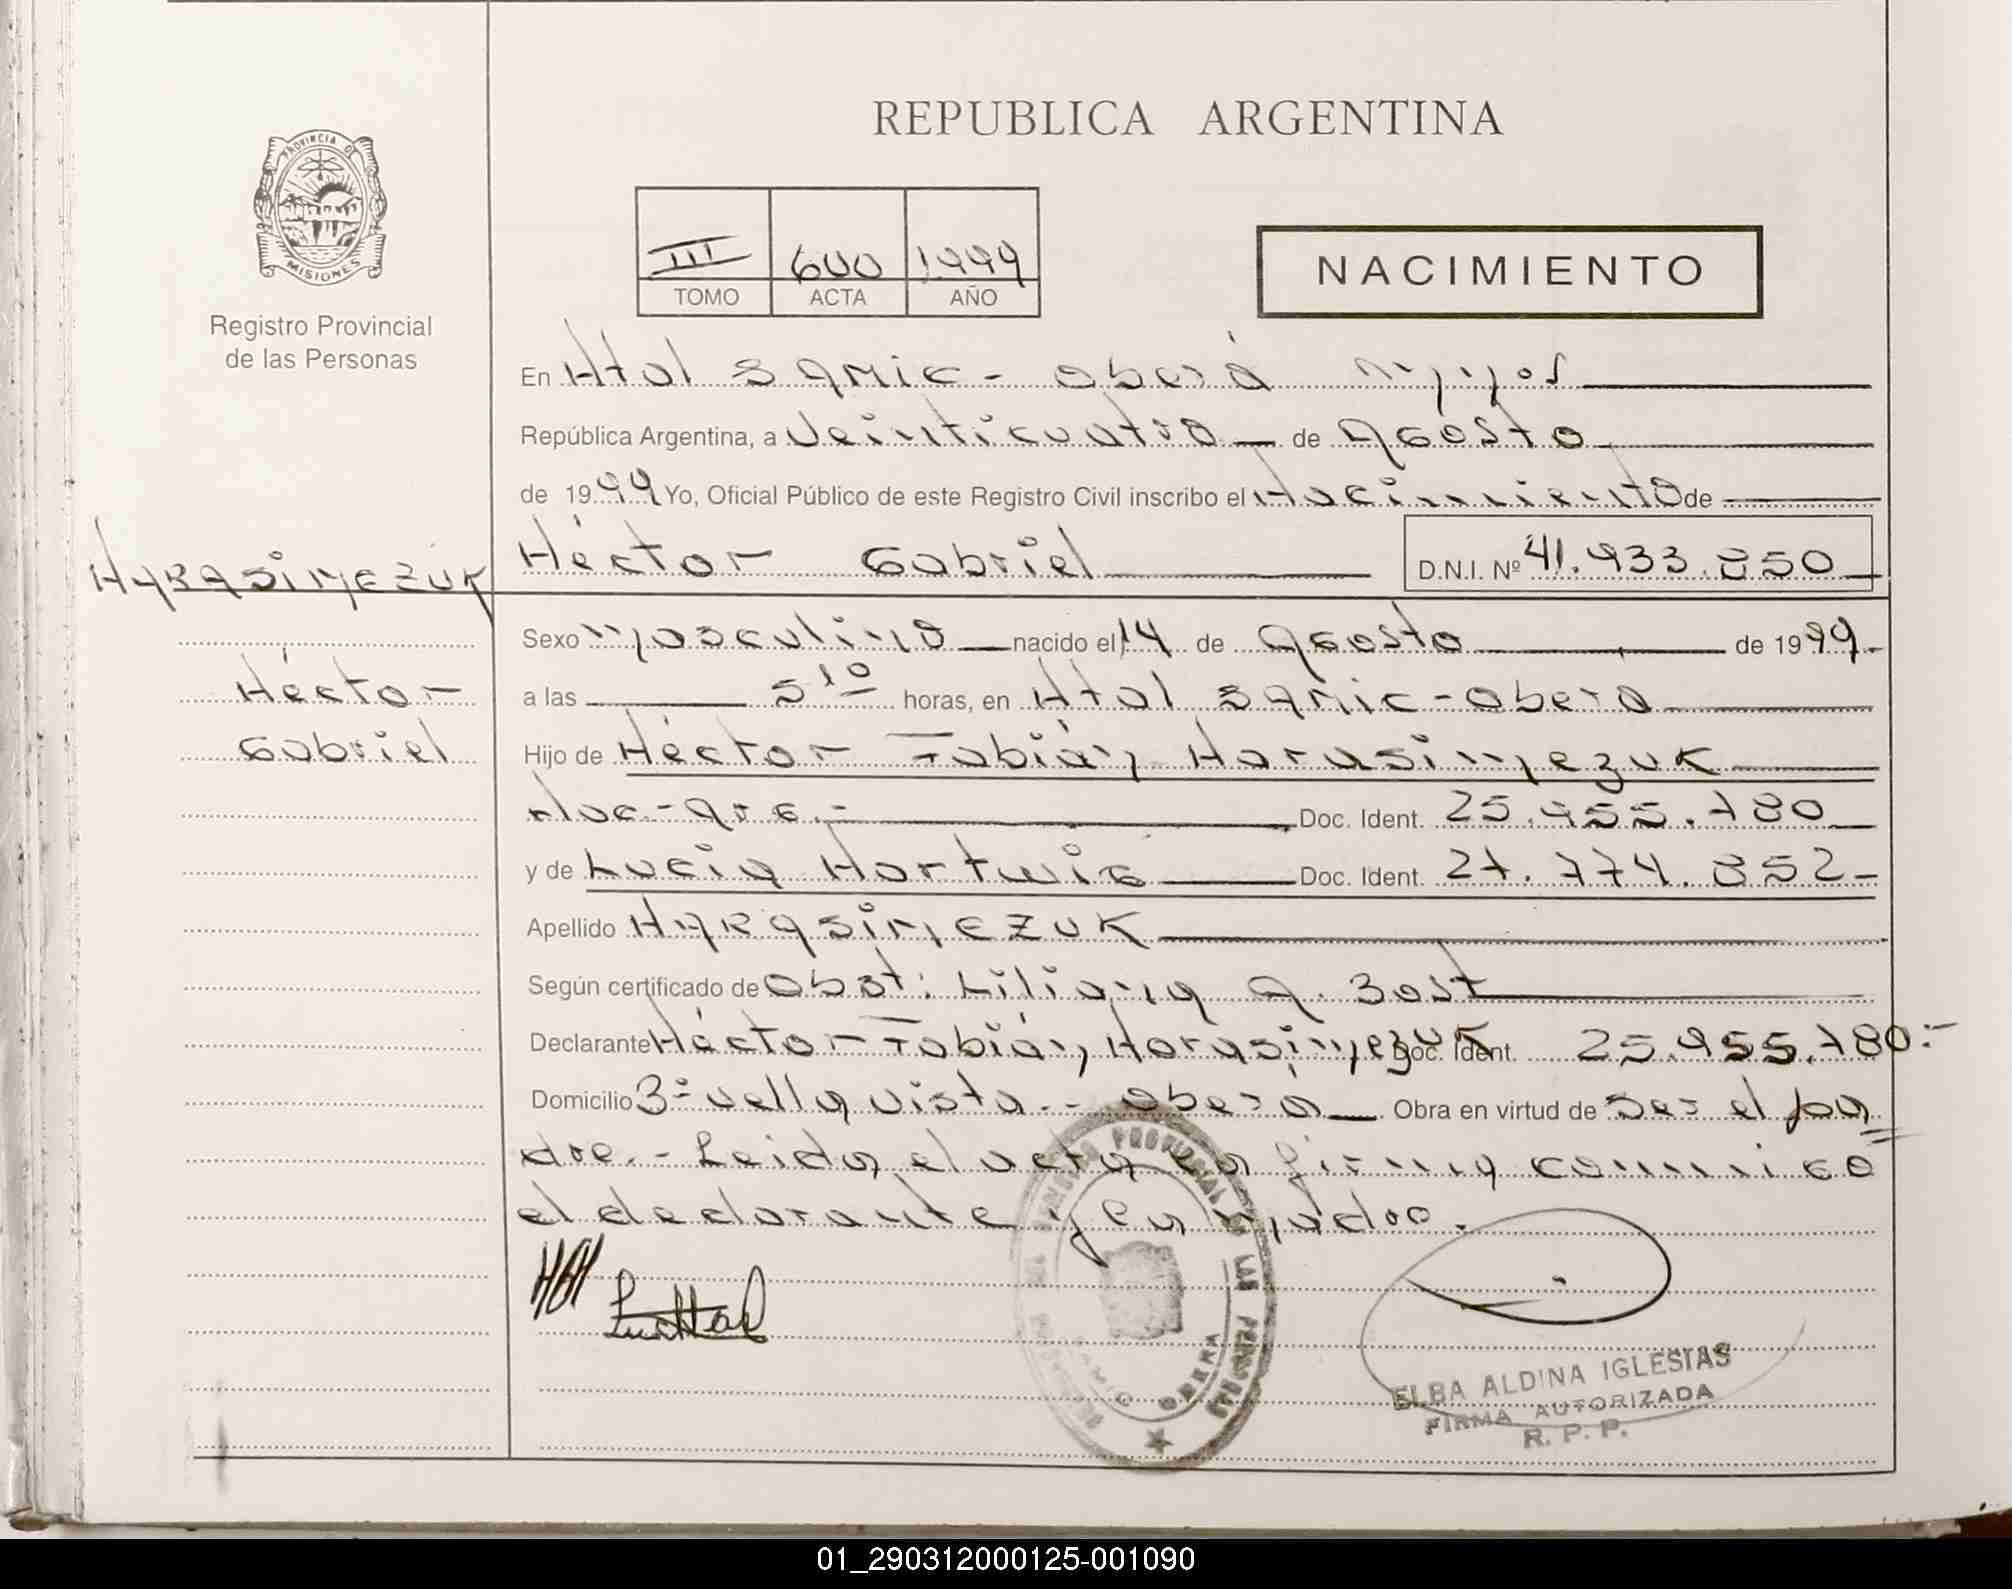 PROVINCIA DE
MISIONES
Registro Provincial
de las Personas
REPUBLICA ARGENTINA
III 600 1999
TOMO ACTA AÑO
NACIMIENTO
En Htal SAMIC - Oberá Mnes
República Argentina, a Veinticuatro de Agosto
de 1999 Yo, Oficial Público de este Registro Civil inscribo el Nacimiento de
HARASIMEZUK
Héctor Gabriel D.N.I. Nº 41.933.850
Sexo masculino nacido el 14 de Agosto de 1999.-
Héctor
Gabriel
a las 5 10 horas, en Htal SAMIC - Oberá
Hijo de Héctor Fabián Harasimezuk
Nac-Arg.- Doc. Ident. 25.955.780
y de Lucia Hartwig Doc. Ident. 27.774.852-
Apellido HARASIMEZUK
Según certificado de Obst: Liliana A. Bost
Declarante Héctor Fabián Harasimezuk Doc. Ident. 25.955.780.-
Domicilio Bº Vella vista - Oberá Obra en virtud de Ser el pa
dre.- Leida el acta la firma conmigo
el declarante y la madre.
REGISTRO PROVINCIAL DE LAS PERSONAS
OBERA
ELBA ALDINA IGLESIAS
FIRMA AUTORIZADA
R. P. P.
01_290312000125-001090